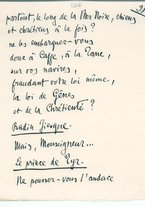 partout, le long de la Mer Noire, chiens
et chrétiens à la fois ?
ne les embarquez-vous
donc à Caffa, à la Tana,
sur vos navires,
fraudant votre loi même,
la loi de Gênes
et de la Chrétienté ?
Badin Fiesque
Mais, Monseigneur...
Le prince de Tyr.
Ne poussez-vous l'audace